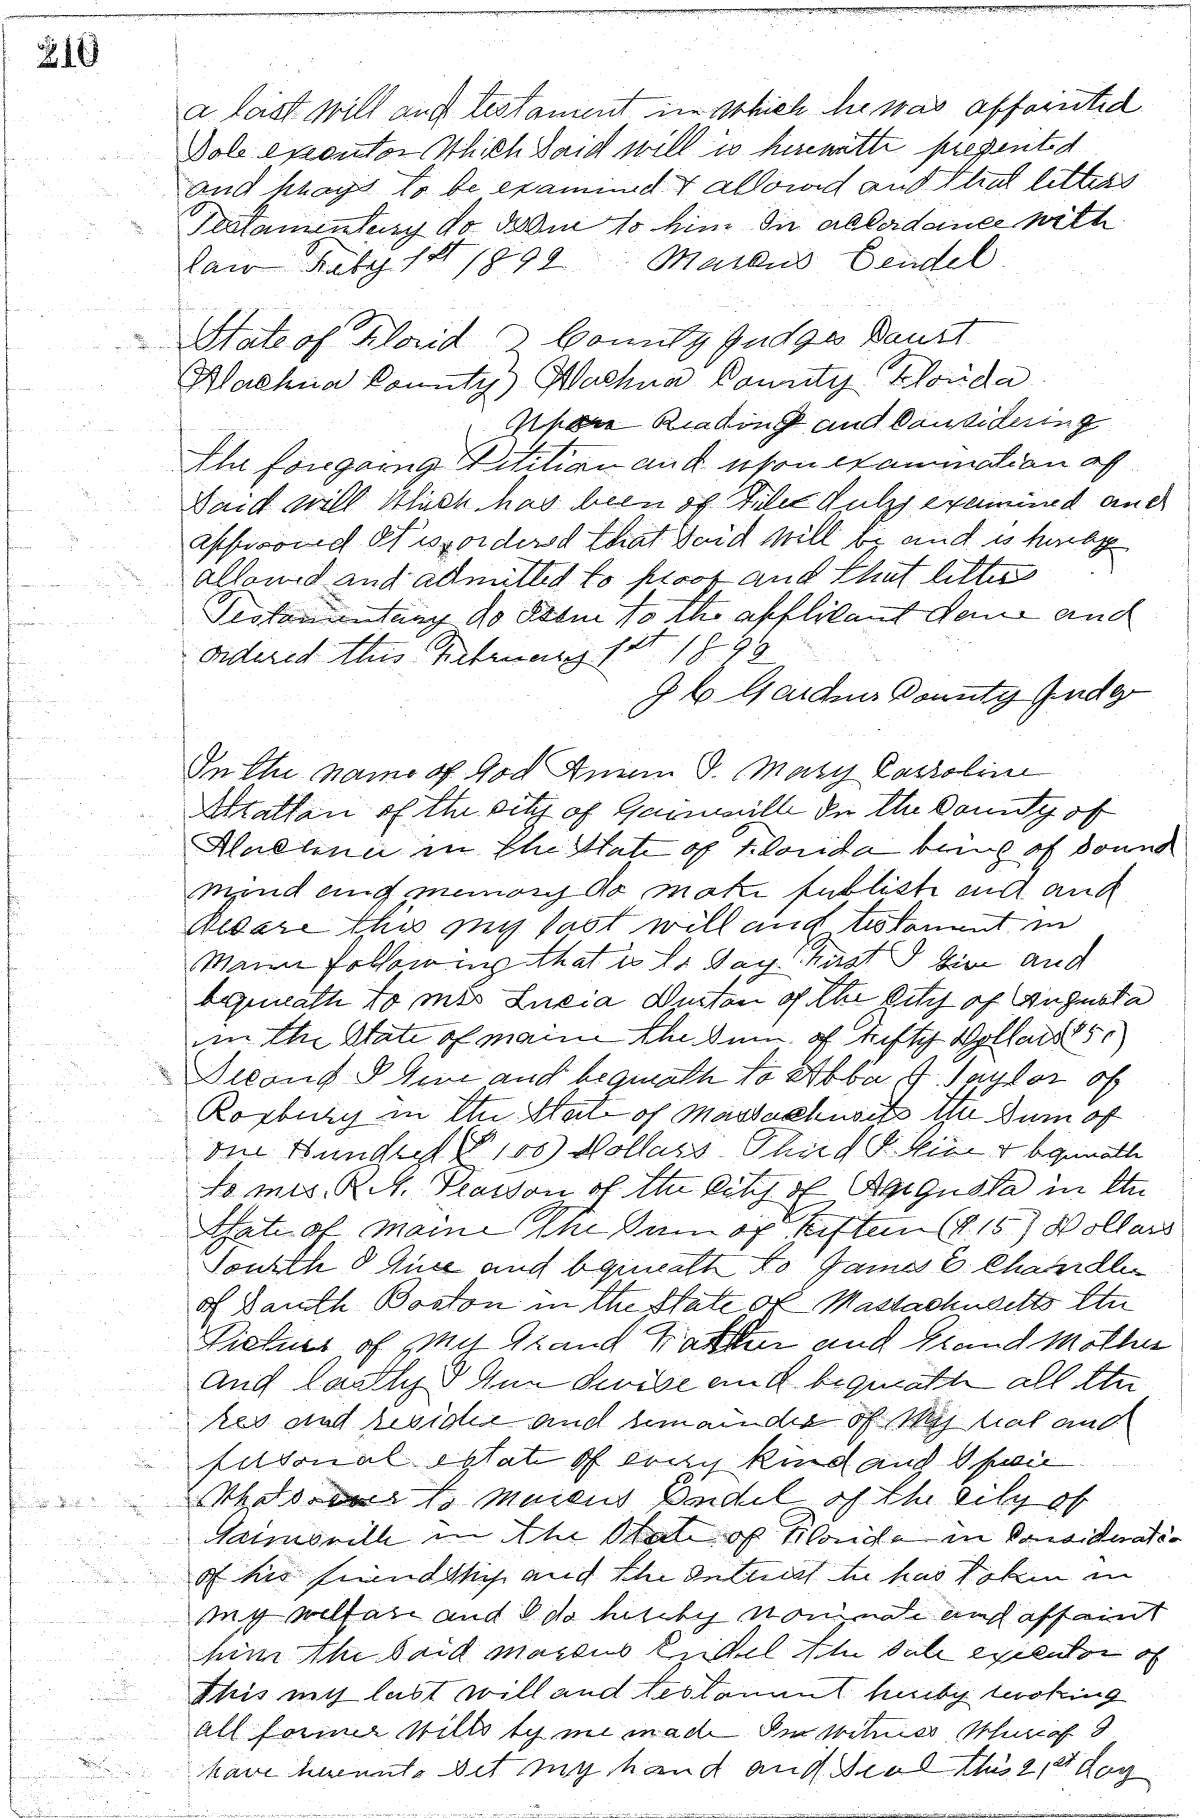 210
a last will and testament in which he was appointed
Sole executor Which Said will is herewith presented
and prays to be examined & allowed and that letters
Testamentary do Issue to him In accordance with
law Feby 1st 1892 Marcus Eendel
State of Florid } County Judges Court
Alachua County } Alachua County Florida
Upon Reading and Considering
the foregoing Petition and upon examination of
Said will Which has been of File duly examined and
approoved It is ordered that Said will be and is hereby
allowed and admitted to proof and that letters
Testamentary do Issue to the applicant done and
ordered this February 1st 1892
J C Gardner County Judge
In the name of God Amem I. Mary Carroline
Strattan of the city of Gainesville In the County of
Alachua in the State of Florida being of Sound
mind and memory do make publish and and
decare this my last will and testament in
Mann following that is to Say. First I Give and
bequeath to mrs Lucia Durton of the City of Augusta
in the State of maine the Sum of Fifty Dollars ($50)
Second I Give and bequeath to Abba J Taylor of
Roxbury in the State of Massachusets the Sum of
one Hundred ($100) Dollars Third I Give & bequeath
to mrs. R. A. Pearson of the City of Augusta in the
State of maine The Sum of Fifteen ($15) Dollars
Fourth I Give and bequeath to James E Chandler
of South Boston in the State of Massachusetts the
Picture of My Grand Father and Grand Mother
and lastly I Give devise and bequeath all the
res and residue and remainder of My real and
personal estate of every kind and Specie
Whatsoever to Marcus Endel of the City of
Gainsville in the State of Florida in Consideratio
of his friendship and the Interest he has taken in
my welfare and I do hereby nominate and appoint
him the Said Marcus Endel the Sole executor of
this my last will and testament hereby revoking
all former Wills by me made In witness Whereof I
have hereunto Set my hand and Seal this 21st day